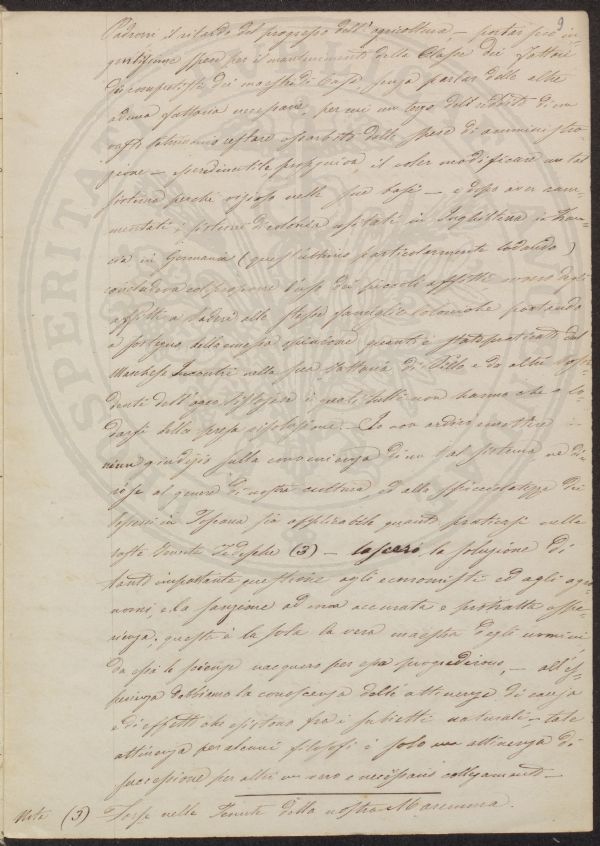 9
Padroni il ritardo del progresso dell'agricoltura — portar seco in-
gentissime spese per il mantenimento della Classe dei Fattori
dei computisti dei maestri di Casa, senza parlar delle altre
ad una fattoria necessarie, per cui un terzo dell'entrata di un
vasto Patrimonio restare assorbito dalle spese di amministra-
zione — il voler modificare un tal
sistema perchè vizioso nelle sue basi — e dopo aver ram-
mentati i sistemi di colonia usitati in Inghilterra in Fran-
cia in Germania (quest'ultimo particolarmente lodando)
concludeva col proporre l'uso dei piccoli affitti ovvero degli
affitti a danaro alle stesse famiglie coloniche portando
a sostegno della emessa opinione quanto è stato praticato dal
Marchese Incontri nella sua Fattoria di e da altri Possi-
denti dell' i quali tutti non hanno che a lo-
darsi della presa risoluzione. Io non ardirei emettere
niun giudizio sulla convenienza di un tal sistema nè di-
rò se al genere di nostra cultura ed alla spicciolatezza dei
possessi in Toscana sia applicabile quanto praticasi nelle
vaste Tenute Tedesche (3) — lascerò la soluzione di
tanto importante questione agli economisti ed agli agro-
nomi, e la sanzione ad una accurata e protratta espe-
rienza; questa è la sola la vera maestra degli uomini,
da essa le scienze nacquero per essa progredirono, — all'es-
perienza dobbiamo la conoscenza delle attinenze di causa
e di effetti che esistono fra i subietti naturali — tale
attinenza per alcuni filosofi è solo una attinenza di
successione per altri un vero e necessario collegamento —
Nota (3) Forse nelle Tenute della nostra Maremma.